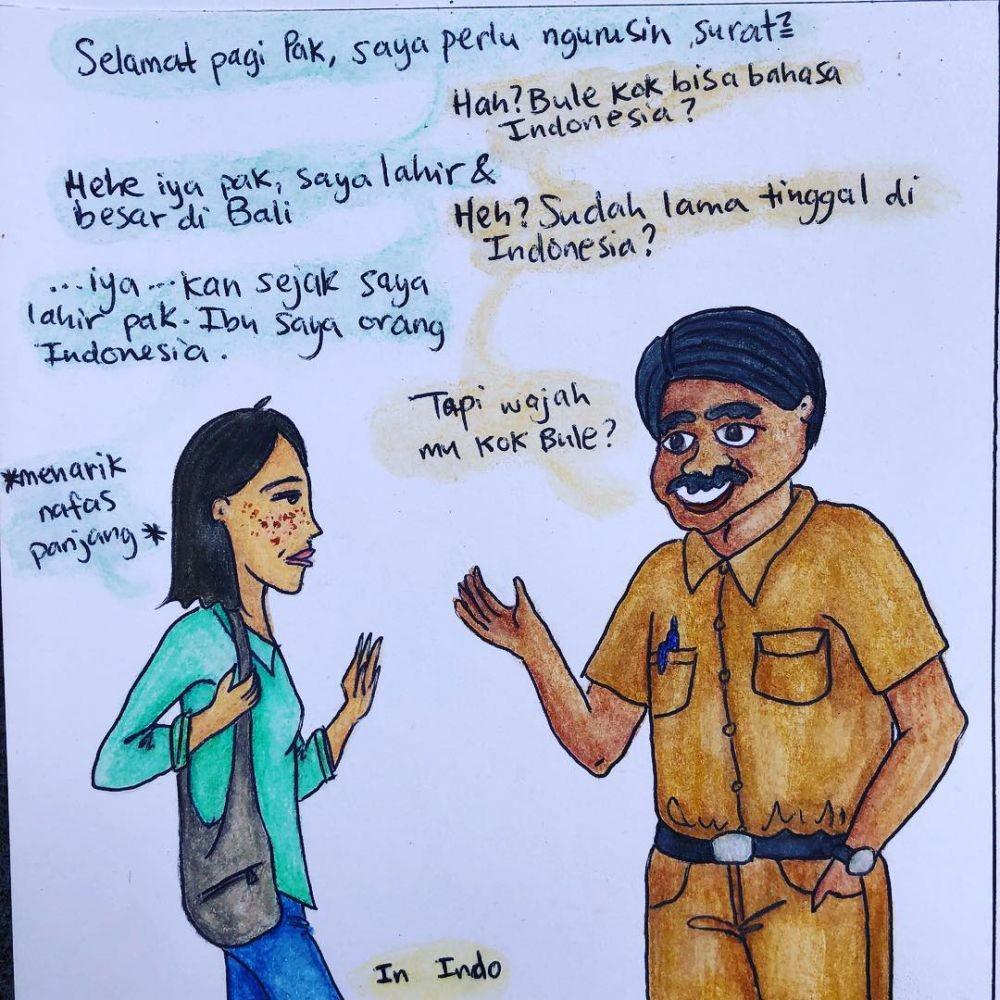 Selamat pagi Pak, saya perlu ngurusin surat²
Hah? Bule kok bisa bahasa
Indonesia?
Hehe iya pak, saya lahir &
besar di Bali
Heh? Sudah lama tinggal di
Indonesia?
...iya...kan sejak saya
lahir pak. Ibu saya orang
Indonesia.
Tapi wajah
mu kok Bule?
*menarik
nafas
panjang*
In Indo